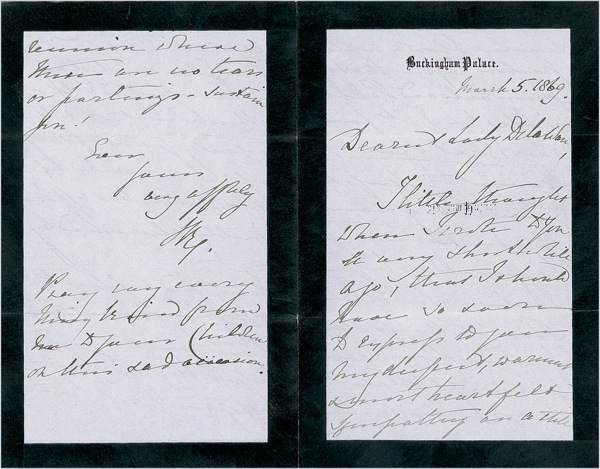 Buckingham Palace.
March 5. 1869.
Dearest Lady Delawarr,
I little thought
when I wrote to you
a very short while
ago, that I should
have so soon
to express to you
my deepest, warmest
& most heartfelt
sympathy on
reunion where
there are no tears
or partings - sustain
you!
Ever
yours
very affly
VR
Pray say every
thing kind from
me to your Children
on this sad occasion.